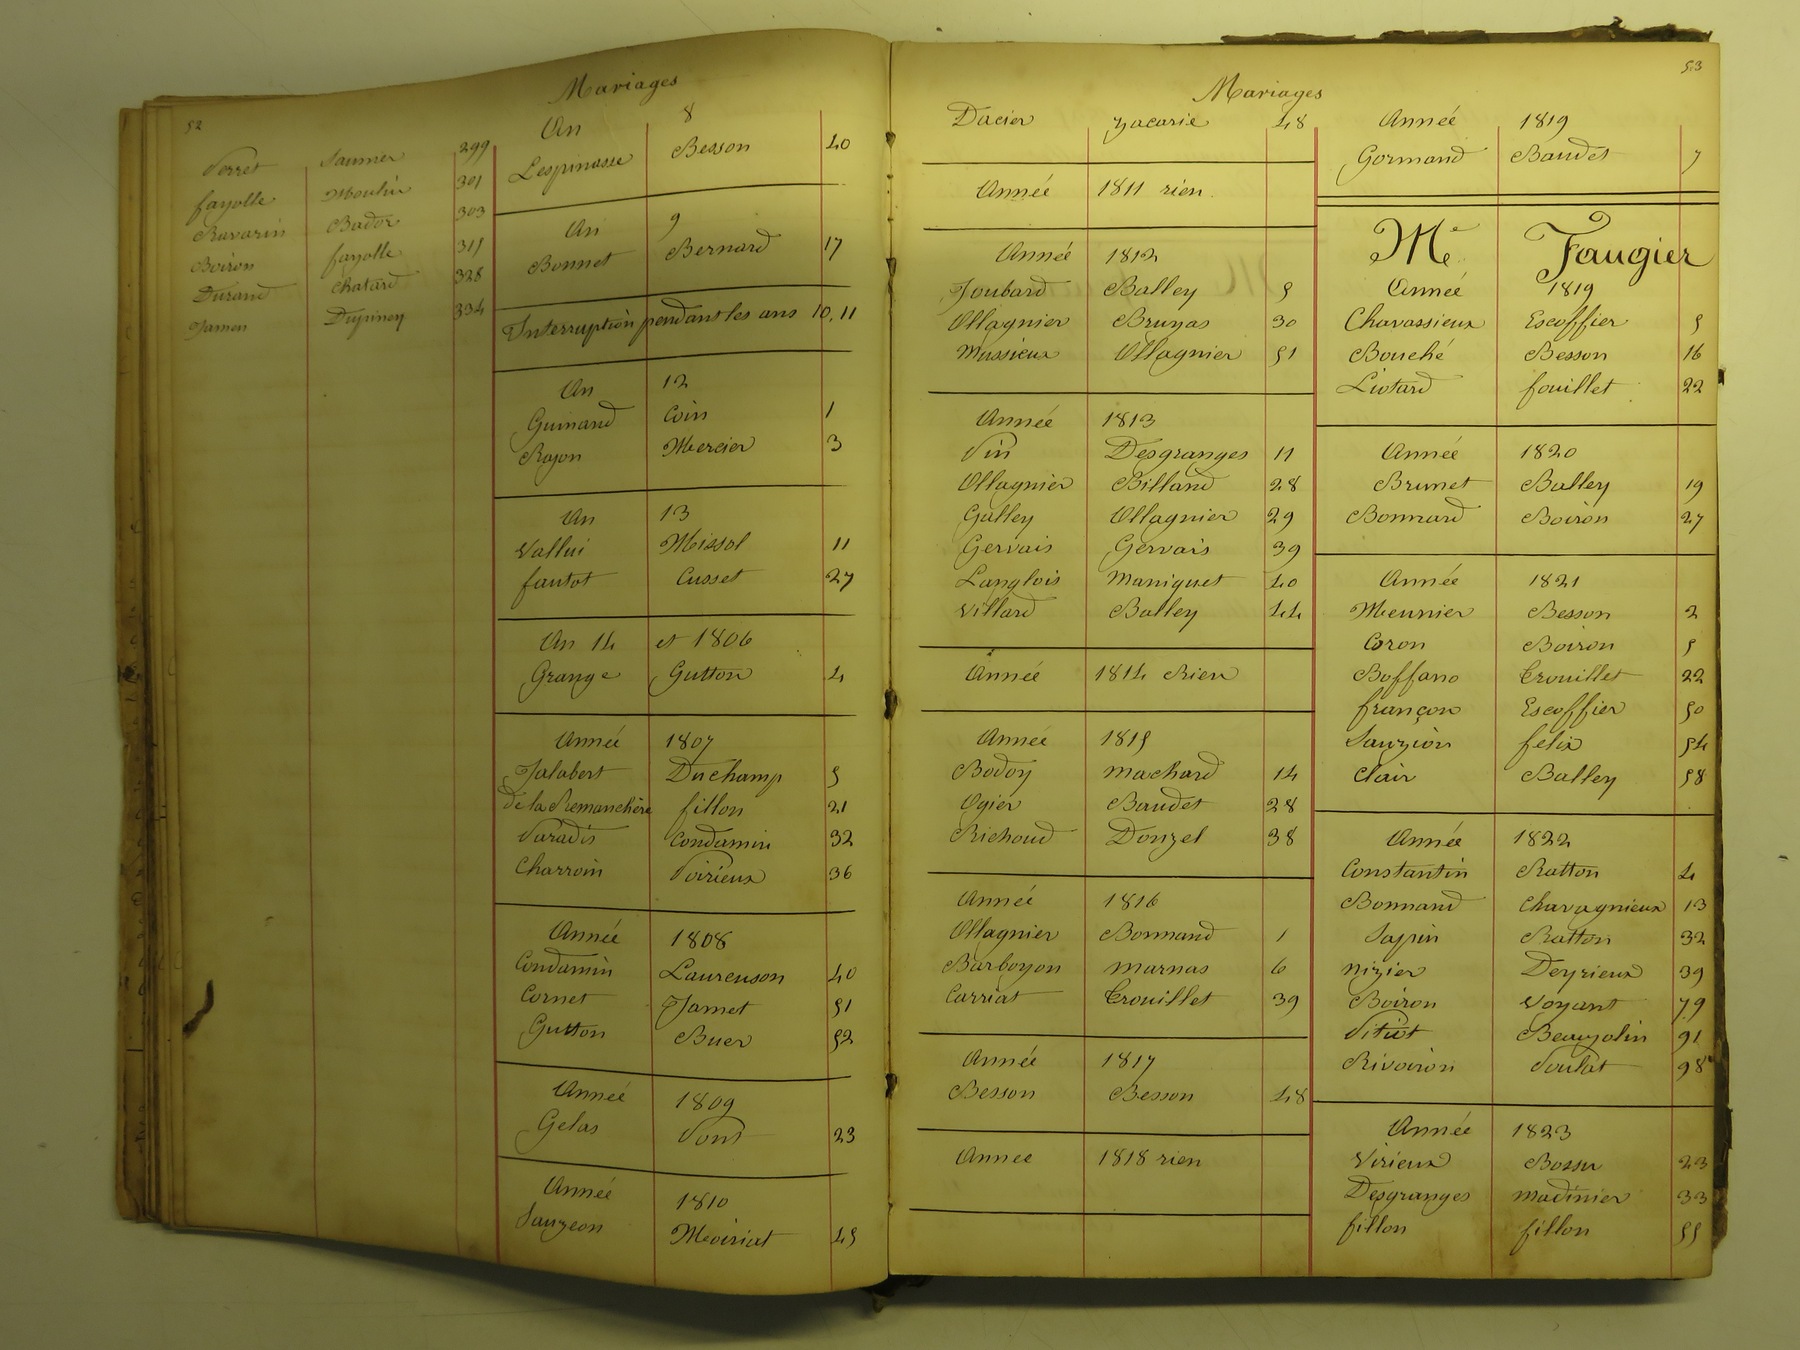 52
Mariages
Perret Saunier 299
fayolle Moulin 301
Ravarin Bador 303
Boiron fayolle 311
Durand Chatard 328
Jamen Dupiney 334
An 8
Lespinasse Besson 40
An 9
Bonnet Bernard 17
Interruption pendant les ans 10, 11
An 12
Guinand Coin 1
Rajon Mercier 3
An 13
Vallui Missol 11
fautot Cusset 27
An 14 et 1806
Grange Gutton 4
Année 1807
Jalabert Duchamp 5
de la Remanchère fillon 21
Paradis Condamin 32
Charroin Poirieux 36
Année 1808
Condamin Laurenson 40
Cornet Jamet 51
Gutton Buer 52
Année 1809
Gelas Pont 23
Année 1810
Sauzeon Moiriat 45
53
Mariages
Dacier Zacarie 48
Année 1811 rien
Année 1812
Joubard Balley 5
Ollagnier Brunas 30
Mussieux Ollagnier 51
Année 1813
Pin Desgranges 11
Ollagnier Billand 28
Galley Ollagnier 29
Gervais Gervais 39
Langlois Maniquet 40
Villard Balley 44
Année 1814 Rien
Année 1815
Bodoy Machard 14
Ogier Baudet 28
Richoud Donzel 38
Année 1816
Ollagnier Bonnand 1
Barboyon Marnas 6
Carriat Crouillet 39
Année 1817
Besson Besson 48
Annee 1818 rien
Année 1819
Gormand Baudet 7
Me Faugier
Année 1819
Chavassieux Escoffier 5
Bouché Besson 16
Liotard fouillet 22
Année 1820
Brunet Balley 19
Bonnard Boiron 27
Année 1821
Meunier Besson 2
Coron Boiron 5
Boffano Crouillet 22
françon Escoffier 50
Sauzion felix 54
Clair Balley 58
Année 1822
Constantin Ratton 4
Bonnand Chavagnieux 13
Sapin Ratton 32
Nizier Deyrieux 39
Boiron Voyant 79
Pitiot Beaujolin 91
Rivoiron Poulat 98
Année 1823
Virieux Bossu 23
Desgranges Madinier 33
fillon fillon 55